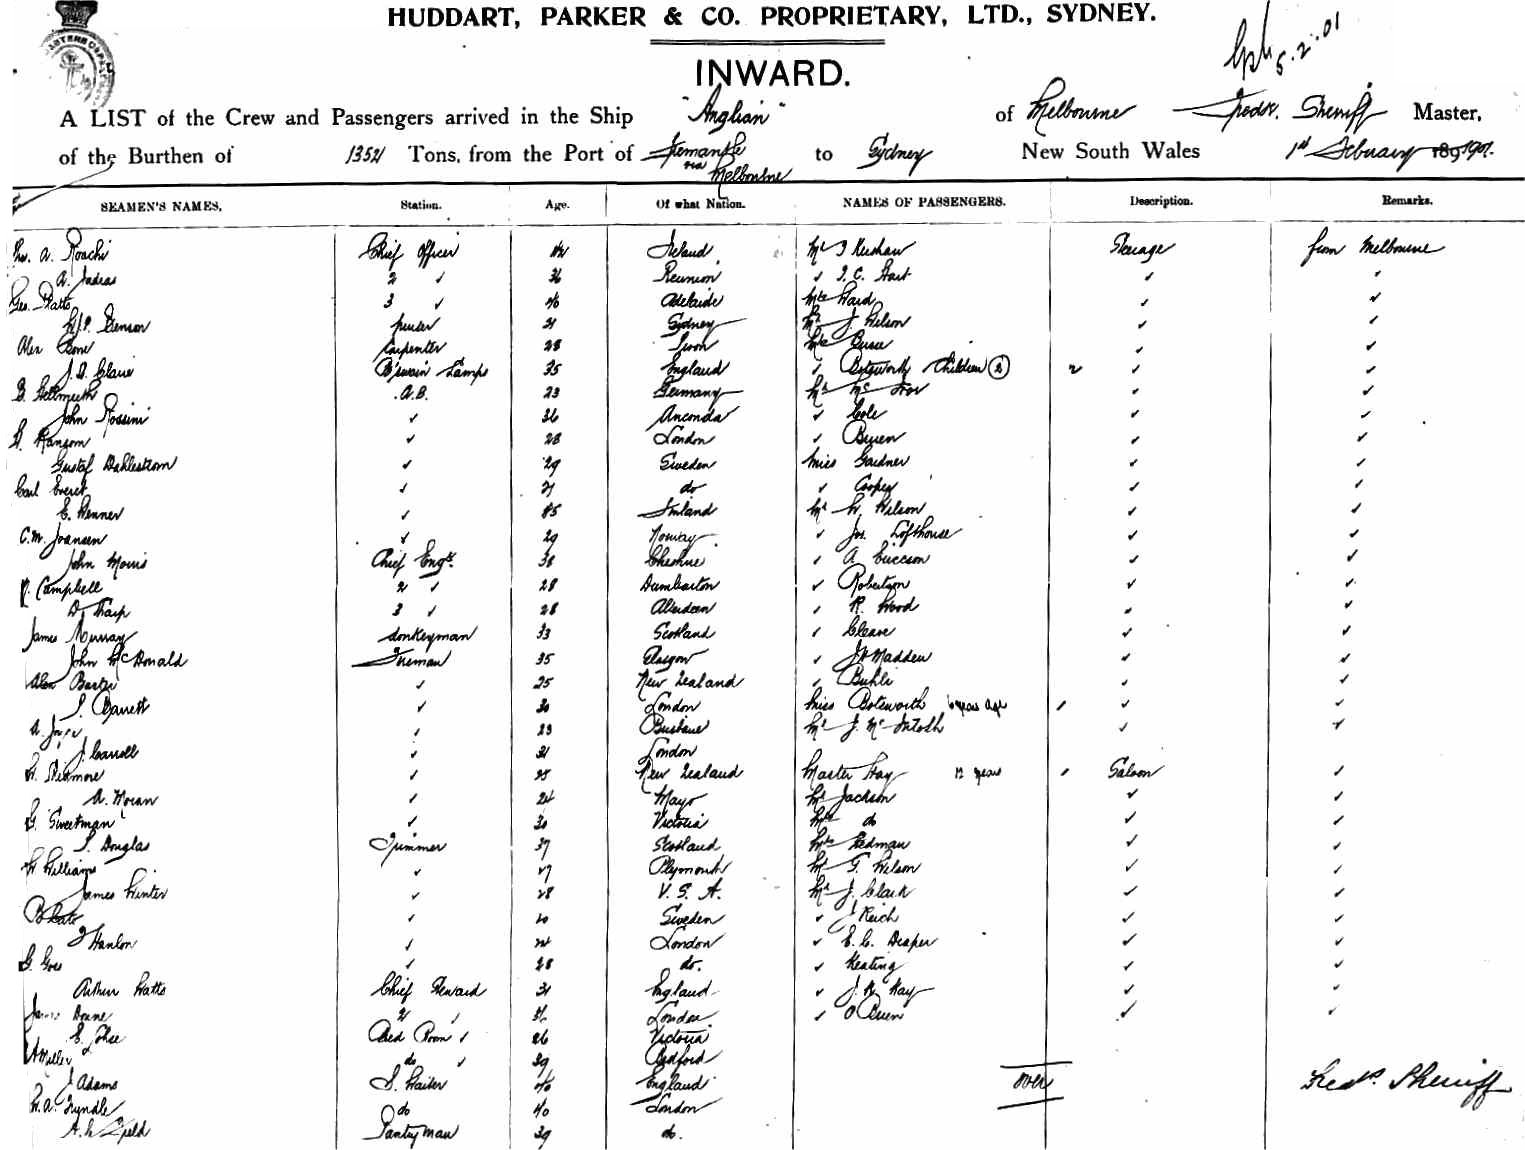 HUDDART, PARKER & CO. PROPRIETARY, LTD., SYDNEY.
5.2.01
INWARD.
A LIST of the Crew and Passengers arrived in the Ship "Anglian" of Melbourne Fredk. Sheriff Master,
of the Burthen of 1352 Tons, from the Port of Fremantle via Melbourne to Sydney New South Wales 1st February 1891901.
SEAMEN'S NAMES. Station. Age. Of what Nation. NAMES OF PASSENGERS. Description. Remarks.
A. Roachi Chief Officer Ireland Mr Kershaw Steerage from Melbourne
A. 2 ✓ 36 Reunion ✓ C. Hart ✓ ✓
Geo. Platts 3 ✓ 40 Adelaide Mrs Ward ✓ ✓
31 Sydney Mr J. Wilson ✓ ✓
Alex Bone Carpenter 28 ✓ ✓
Claire Lamps 35 England ✓ Botsworth Children (2) 2 ✓ ✓
Hellmuth A.B. 23 Germany Mc ✓ ✓
John Rossini ✓ 36 Anconda ✓ Cole ✓ ✓
Ransom ✓ 28 London ✓ ✓ ✓
Gustaf Dahlestrom ✓ 29 Sweden Miss Gardner ✓ ✓
Carl ✓ 21 do ✓ Cooper ✓ ✓
E. Wenner ✓ Finland Mr W. Wilson ✓ ✓
C.M. Joansen ✓ 29 Norway ✓ Jos. Lofthouse ✓ ✓
John Morris Chief Engr. 38 Cheshire ✓ A Ericcson ✓ ✓
Campbell 2 ✓ 28 Dumbarton ✓ Robertson ✓ ✓
D. Tharp 3 ✓ 28 Aberdeen ✓ R. Wood ✓ ✓
James Murray donkeyman 33 Scotland ✓ Cleave ✓ ✓
John McDonald Fireman 35 Glasgow ✓ Madden ✓ ✓
Alex Baxter ✓ 25 New Zealand ✓ Buhli ✓ ✓
Barrett ✓ 30 London Miss Botsworth 6 years age ✓ ✓ ✓
A. Joyce ✓ 23 Brisbane Mr J. McIntosh ✓ ✓
J. Carroll ✓ 31 London
Skidmore ✓ New Zealand Master Hay 12 years ✓ Saloon ✓
A. Moran ✓ 24 Mayo Mr Jackson ✓ ✓
G. Sweetman ✓ 30 Victoria Mrs do ✓ ✓
Douglas Trimmer 37 Scotland Mrs Redman ✓ ✓
W Williams ✓ 27 Plymouth Mr G. Wilson ✓ ✓
James Winter ✓ 28 U. S. A. Mr J. Clark ✓ ✓
✓ 20 Sweden ✓ Reich ✓ ✓
Hanlon ✓ London ✓ E. C. Draper ✓ ✓
G. Goss ✓ 28 do. ✓ Keating ✓ ✓
Arthur Watts Chief Steward 31 England ✓ J. Hay ✓ ✓
James 2 ✓ London ✓ O Brien ✓ ✓
E. Bed Room ✓ 26 Victoria
A Miller do ✓ 39 Bedford
J Adams S. Waiter 40 England over Fredk. Sheriff
W. A. Tyndle do 40 London
Pantryman 39 do.